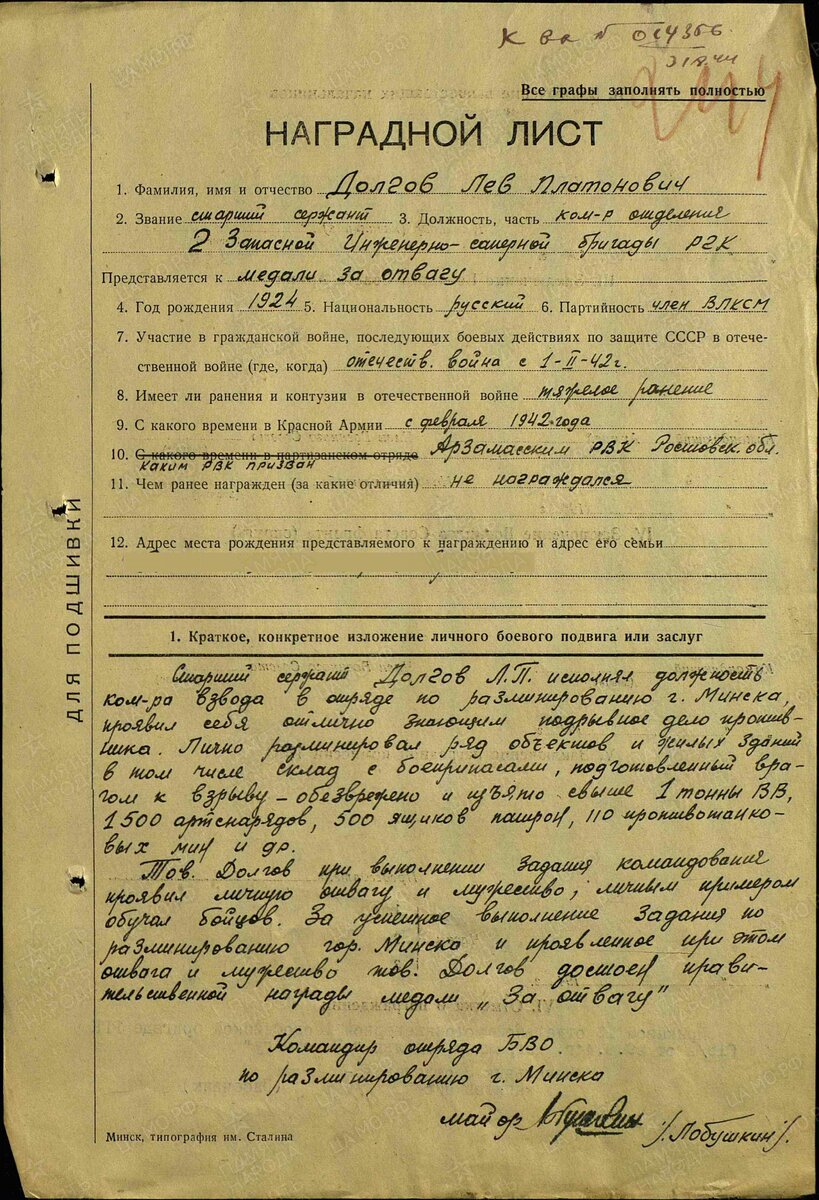 К вх № 014366
Все графы заполнять полностью
НАГРАДНОЙ ЛИСТ
1. Фамилия, имя и отчество Долгов Лев Платонович
2. Звание старший сержант 3. Должность, часть ком-р отделения
2 Запасной Инженерно-саперной бригады РГК
Представляется к медали за отвагу
4. Год рождения 1924 5. Национальность русский 6. Партийность член ВЛКСМ
7. Участие в гражданской войне, последующих боевых действиях по защите СССР в отече-
ственной войне (где, когда) отечеств. война с 1-II-42 г.
8. Имеет ли ранения и контузии в отечественной войне тяжелое ранение
9. С какого времени в Красной Армии с февраля 1942 года
10. С какого времени в партизанском отряде Арзамасским РВК Ростовск. обл.
каким РВК призван
11. Чем ранее награжден (за какие отличия) не награждался
12. Адрес места рождения представляемого к награждению и адрес его семьи
ДЛЯ ПОДШИВКИ
1. Краткое, конкретное изложение личного боевого подвига или заслуг
Старший сержант Долгов Л.П. исполнял должность
ком-ра взвода в отряде по разминированию г. Минска,
проявил себя отлично знающим подрывное дело против-
ника. Лично разминировал ряд объектов и жилых зданий
в том числе склад с боеприпасами, подготовленный вра-
гом к взрыву – обезврежено и изъято свыше 1 тонны ВВ,
1500 артснарядов, 500 ящиков патрон, 110 противотанко-
вых мин и др.
Тов. Долгов при выполнении задания командования
проявил личную отвагу и мужество, личным примером
обучал бойцов. За успешное выполнение задания по
разминированию гор. Минска и проявленное при этом
отвага и мужество тов. Долгов достоен прави-
тельственной награды медали „За отвагу"
Командир отряда БВО
по разминированию г. Минска
майор /Лобушкин/.
Минск, типография им. Сталина